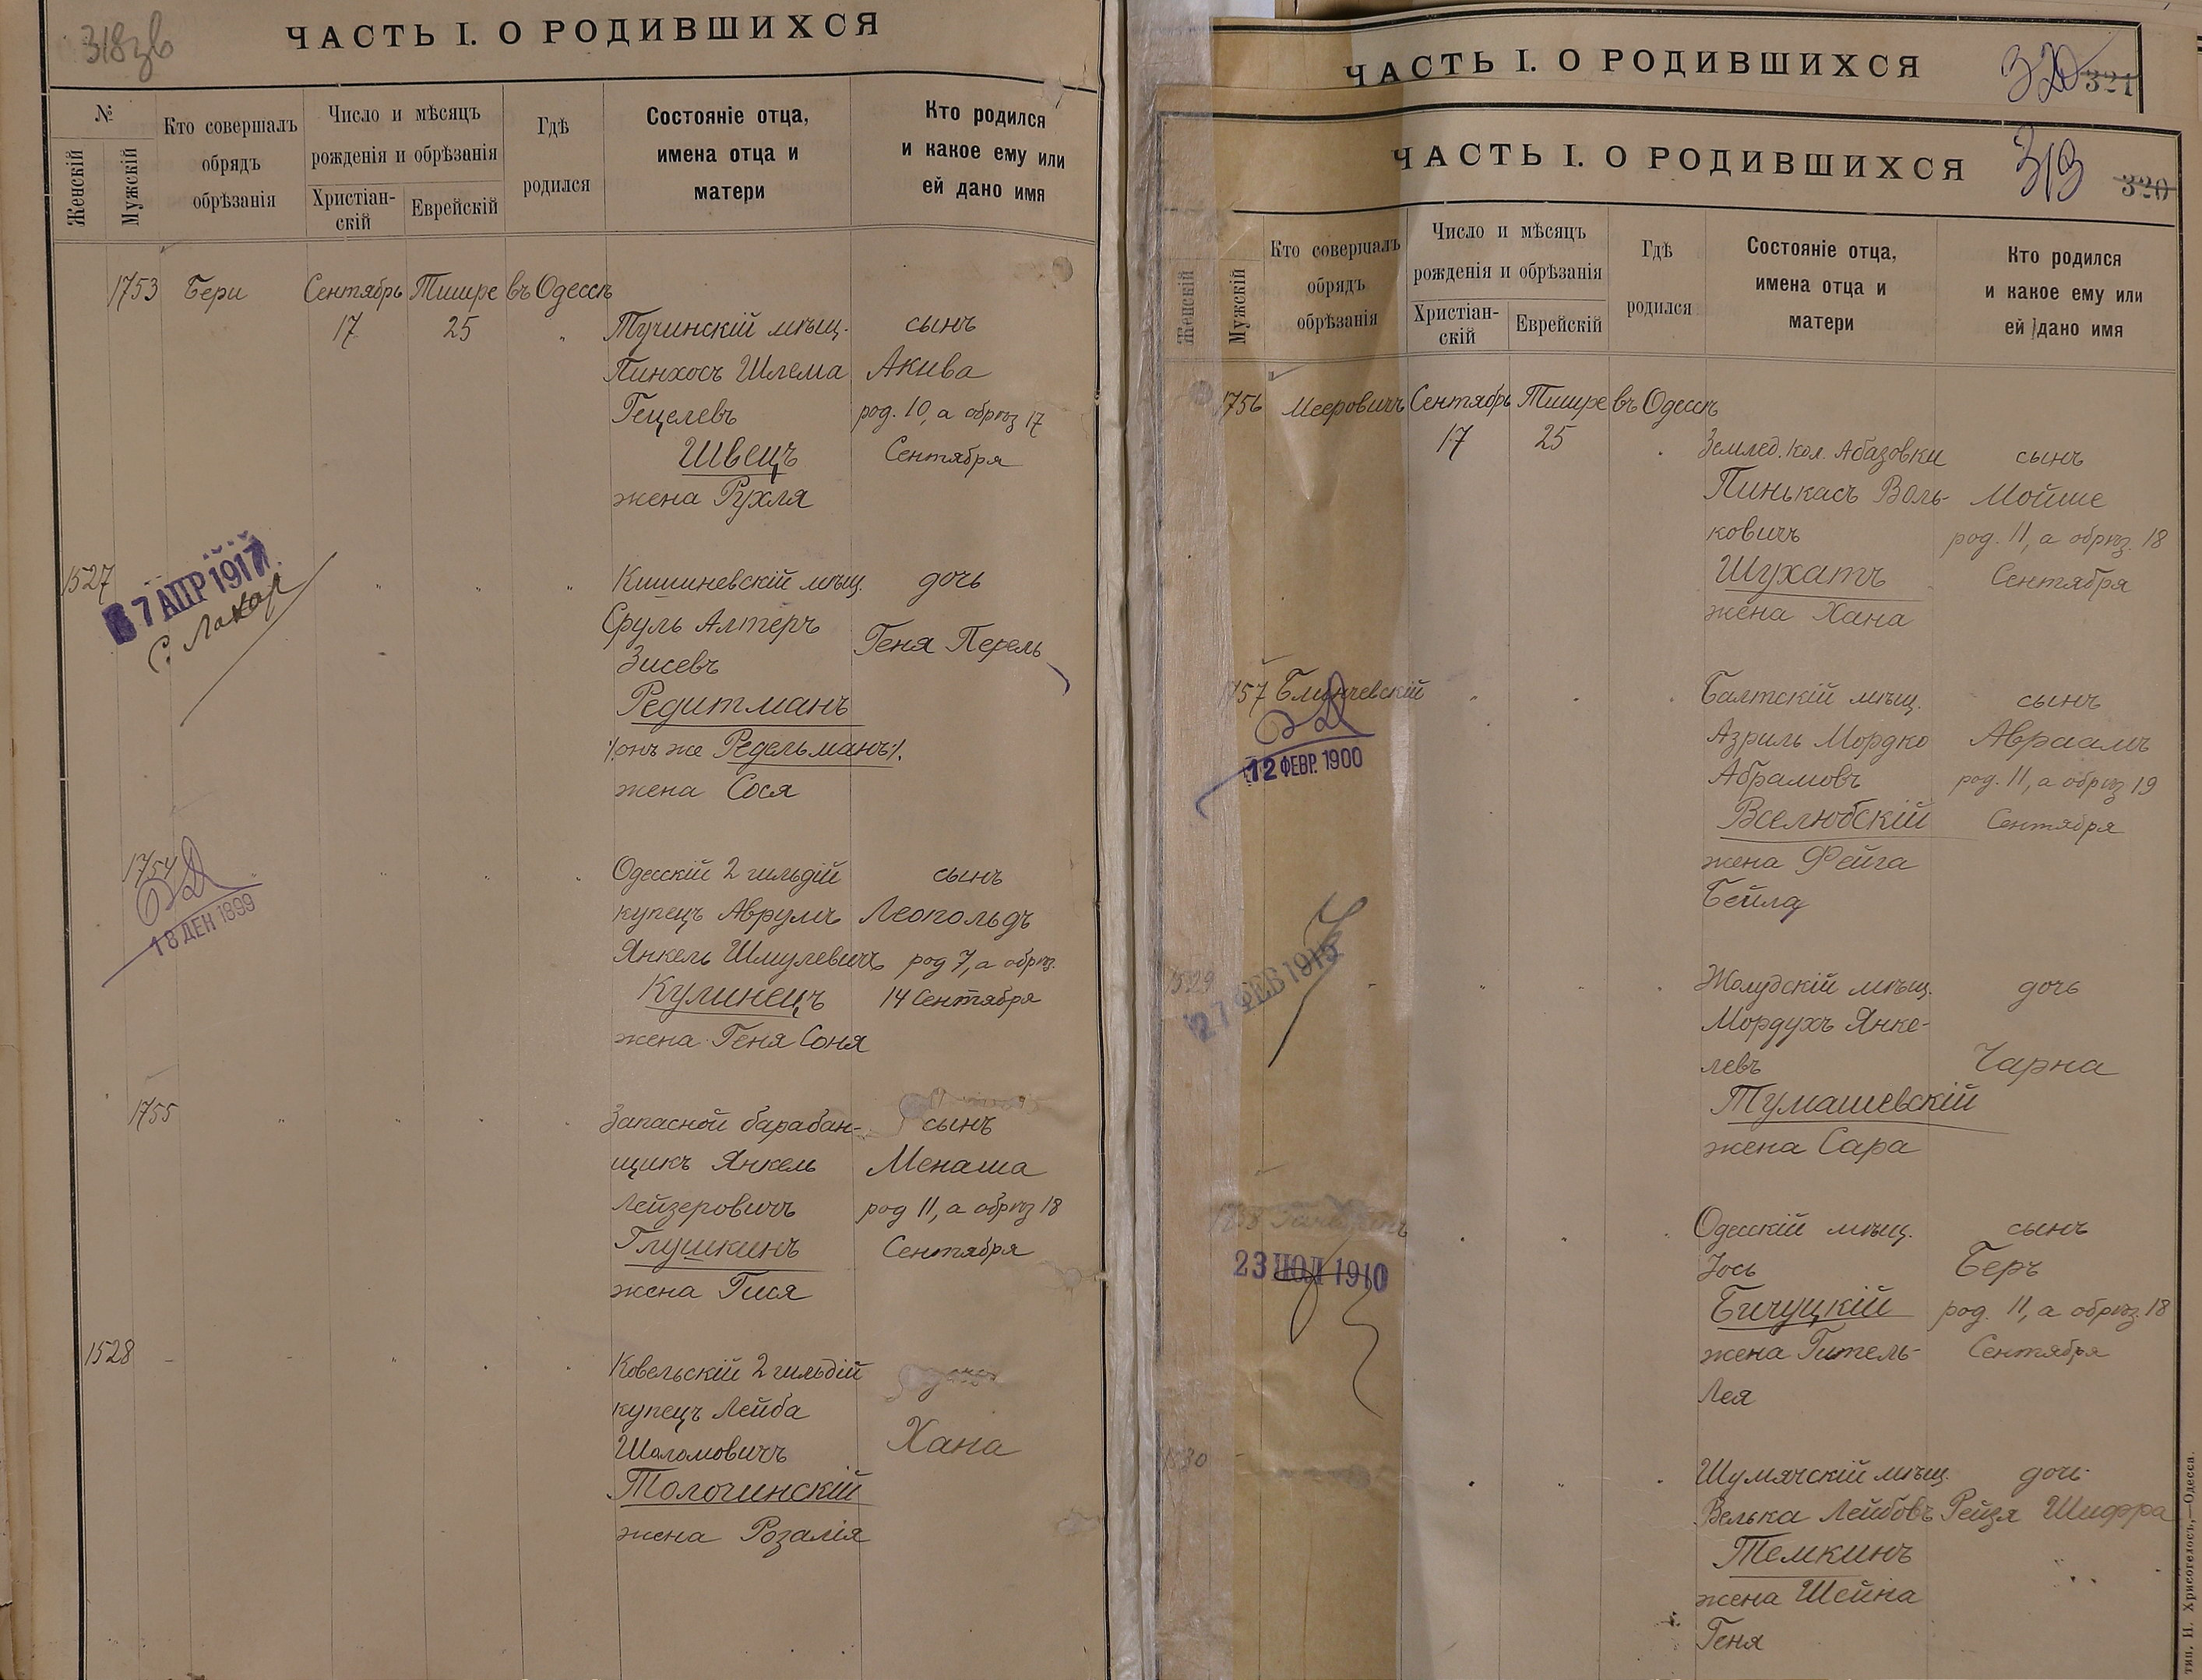 318 зв
ЧАСТЬ I. О РОДИВШИХСЯ
№
Женскій
Мужскій
Кто совершалъ
обрядъ
обрѣзанія
Число и мѣсяцъ
рожденія и обрѣзанія
Христіан-
скій
Еврейскій
Гдѣ
родился
Состояніе отца,
имена отца и
матери
Кто родился
и какое ему или
ей дано имя
1753 Бери Сентябрь Тишре въ Одессѣ
17 25 Тучинскій мѣщ. сынъ
Пинхосъ Шлема Акива
Гецелевъ род. 10, а обрѣз 17
Швецъ Сентября
жена Рухля
1527 Кишиневскій мѣщ. дочь
7 АПР 1917
Сруль Алтеръ Геня Перель
Зисевъ
Редитманъ
/:онъ же Редельманъ:/.
жена Сося
1754 Одесскій 2 гильдій сынъ
18 ДЕК 1899
купецъ Аврумъ Леопольдъ
Янкель Шмулевичъ род 7, а обрѣз.
Кулинецъ 14 Сентября
жена Геня Соня
1755 Запасной барабан- сынъ
щикъ Янкель Менаша
Лейзеровичъ род 11, а обрѣз 18
Глушкинъ Сентября
жена Гися
1528 Ковельскій 2 гильдій дочь
купецъ Лейба
Шоломовичъ Хана
Толочинскій
жена Розалія
ЧАСТЬ I. О РОДИВШИХСЯ
320 321
ЧАСТЬ I. О РОДИВШИХСЯ
319 320
Женскій
Мужскій
Кто совершалъ
обрядъ
обрѣзанія
Число и мѣсяцъ
рожденія и обрѣзанія
Христіан-
скій
Еврейскій
Гдѣ
родился
Состояніе отца,
имена отца и
матери
Кто родился
и какое ему или
ей дано имя
1756 Мееровичъ Сентябрь Тишре въ Одессѣ
17 25 Землед. кол. Абазовки сынъ
Пинькасъ Воль- Мойше
ковичъ род. 11, а обрѣз. 18
Шухатъ Сентября
жена Хана
1757 Блинчевскій Балтскій мѣщ. сынъ
12 ФЕВР. 1900
Азриль Мордко Авраамъ
Абрамовъ род. 11, а обрѣз 19
Вселюбскій Сентября
жена Фейга
Бейла
1529 Жолудскій мѣщ. дочь
27 ФЕВ 1915
Мордухъ Янке-
левъ Чарна
Тумашевскій
жена Сара
1758 Одесскій мѣщ. сынъ
23 ИЮЛ 1910
Іось Беръ
Бичуцкій род. 11, а обрѣз. 18
жена Гитель- Сентября
Лея
1530 Шумячскій мѣщ. дочь
Велька Лейбовъ Рейзя Шифра
Темкинъ
жена Шейна
Геня
тип. И. Хрисогелосъ,—Одесса.